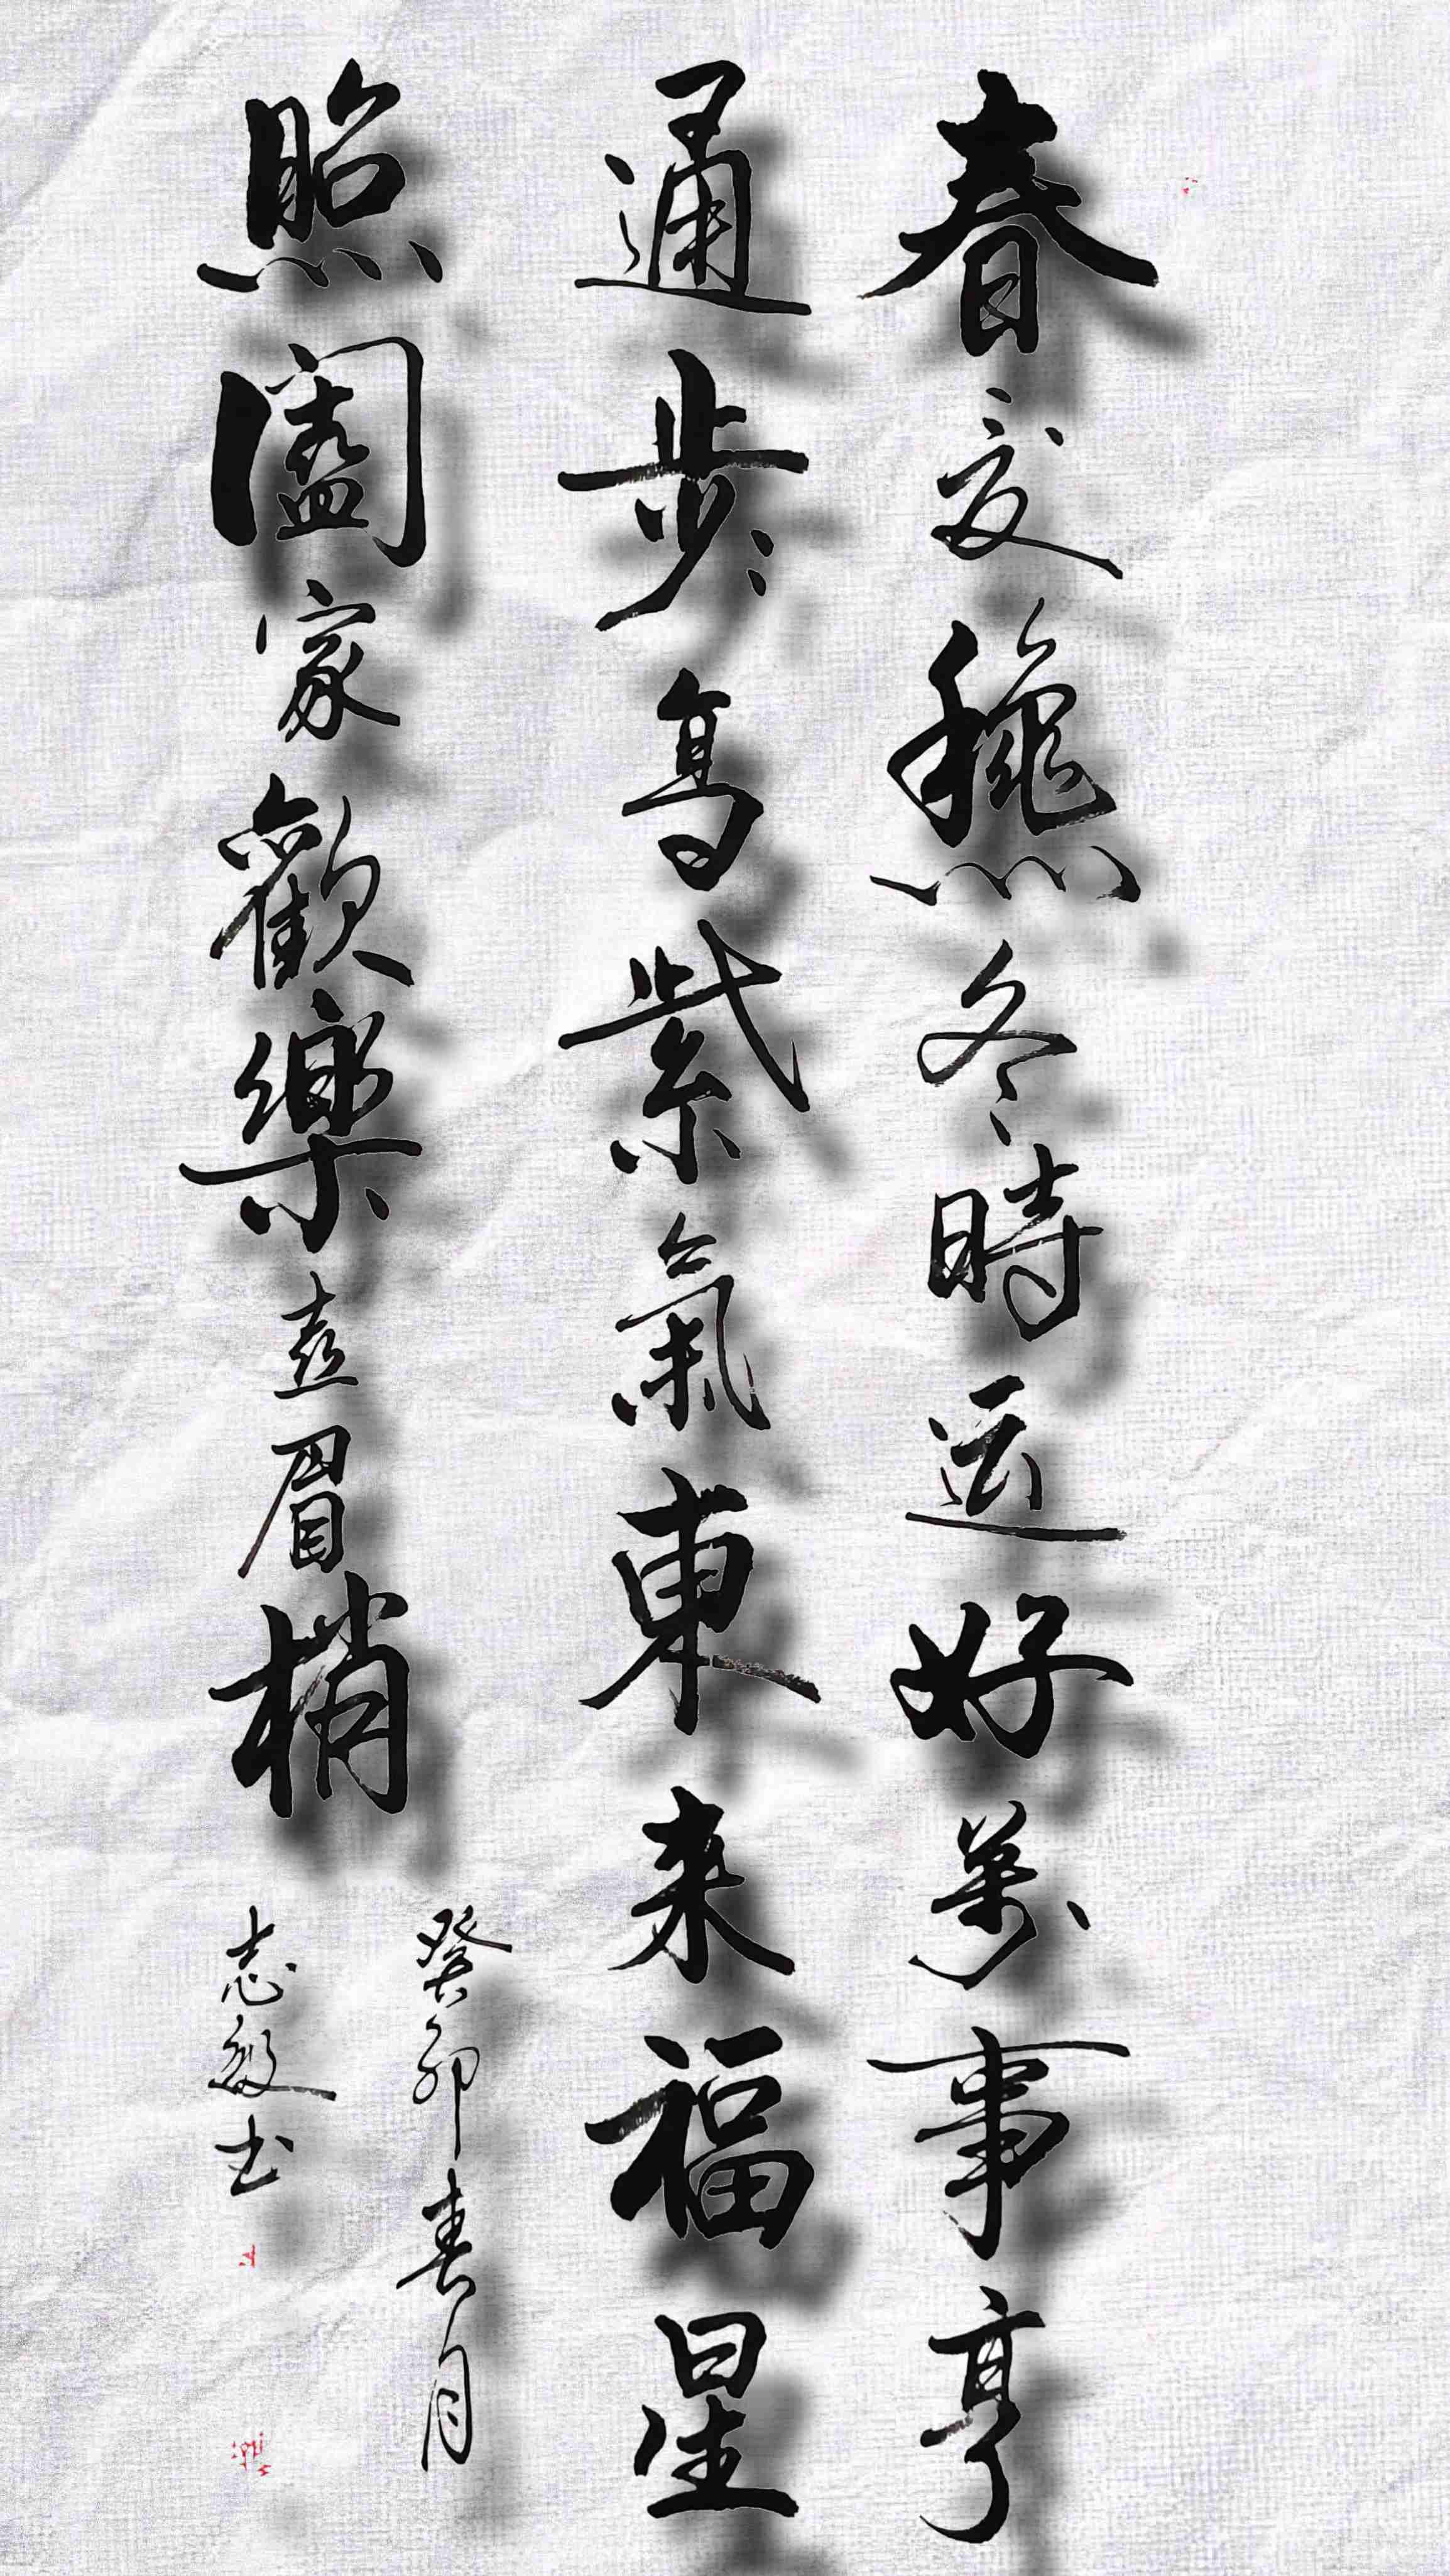 春夏穐冬時运好萬事亨
通步步高紫氣東来福星
照闔家歡樂喜眉梢
癸卯春月
志毅书